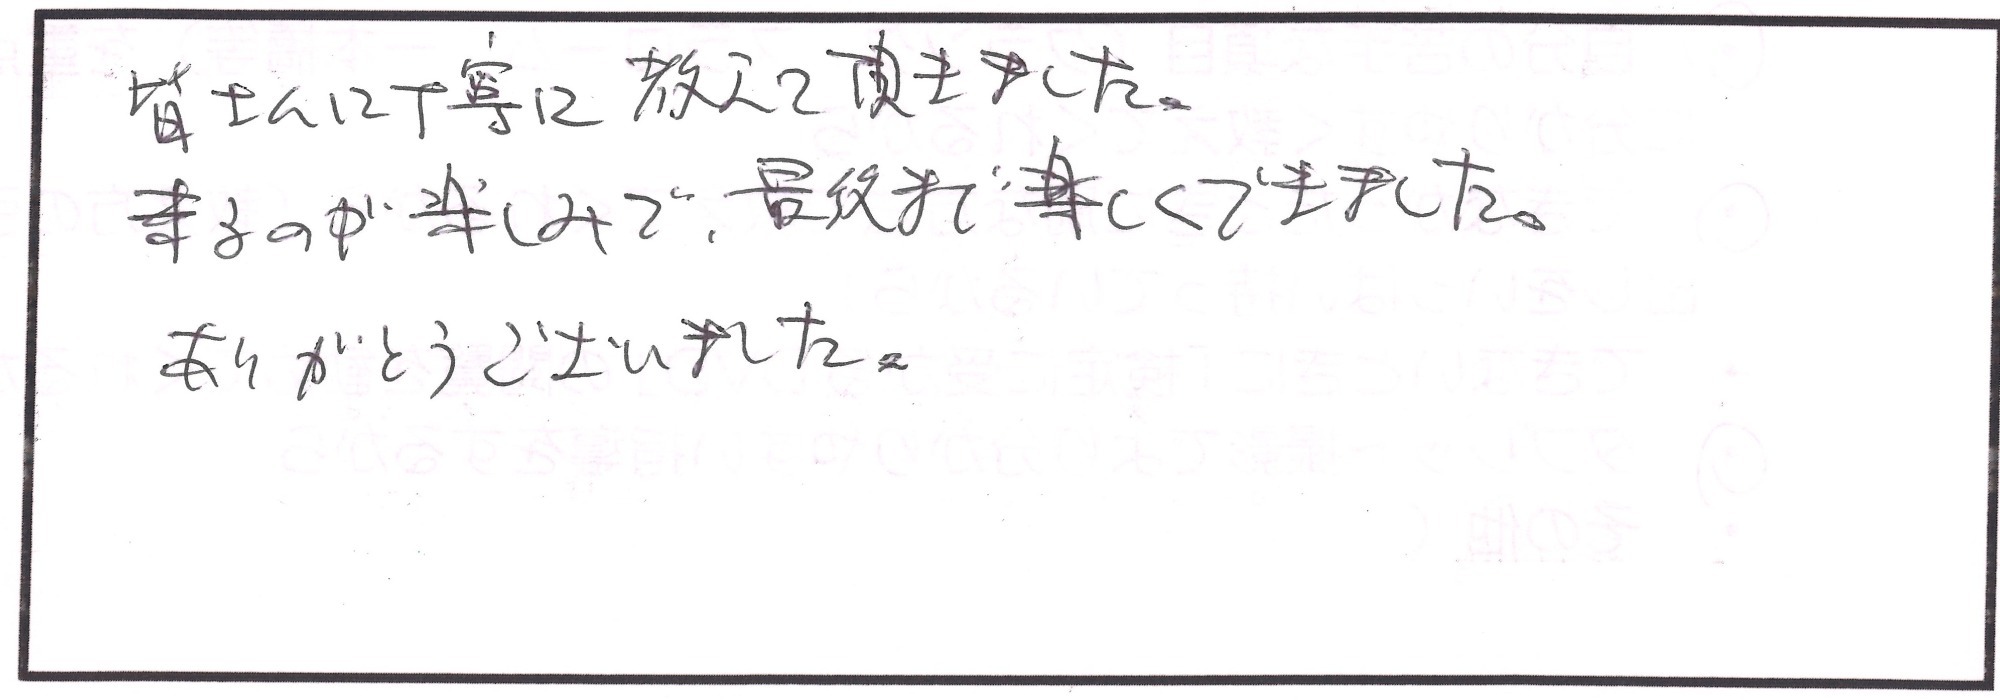 皆さんに丁寧に教えて頂きました。
来るのが楽しみで、最後まで楽しくできました。
ありがとうございました。